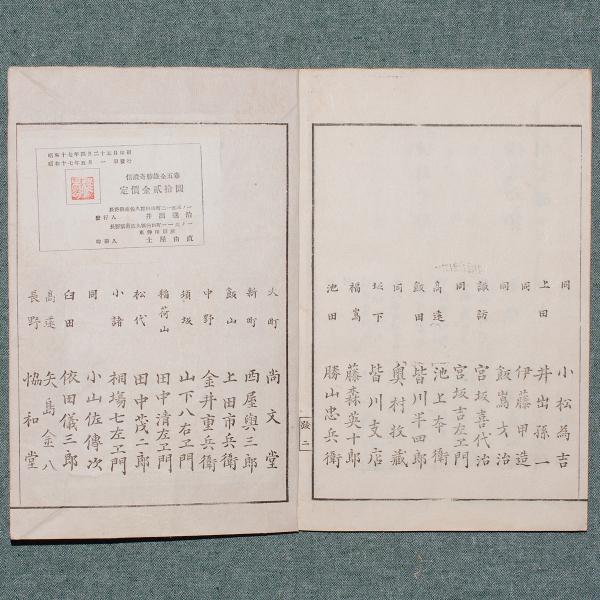 同 小松為吉
上田 井出孫一
同 伊藤甲造
同 飯嶌戈治
諏訪 宮坂喜代治
同 宮坂吉左ヱ門
高遠 池上本衛
飯田 皆川半四郎
同 奥村牧藏
坂下 皆川支店
福嶌 藤森英十郎
池田 勝山忠兵衛
跋 二
昭和十七年四月二十五日印刷
昭和十七年五月一日發行
信濃奇勝錄全五卷
定價金貳拾圓
發行人 井出
印刷人 土屋由直
大町 尚文堂
新町 西屋與三郎
飯山 上田市兵衛
中野 金井重兵衛
須坂 山下八右ヱ門
稲荷山 田中清左ヱ門
松代 田中茂二郎
小諸 相場七左ヱ門
同 小山佐傳次
臼田 依田儀三郎
高遠 矢島金八
長野 協和堂